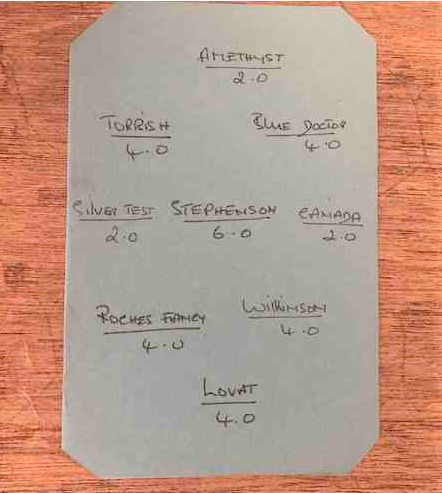 AMETHYST
2.0
TORRISH BLUE DOCTOR
4.0 4.0
SILVER TEST STEPHENSON CANADA
2.0 6.0 2.0
ROCHES FANCY WILKINSON
4.0 4.0
LOVAT
4.0